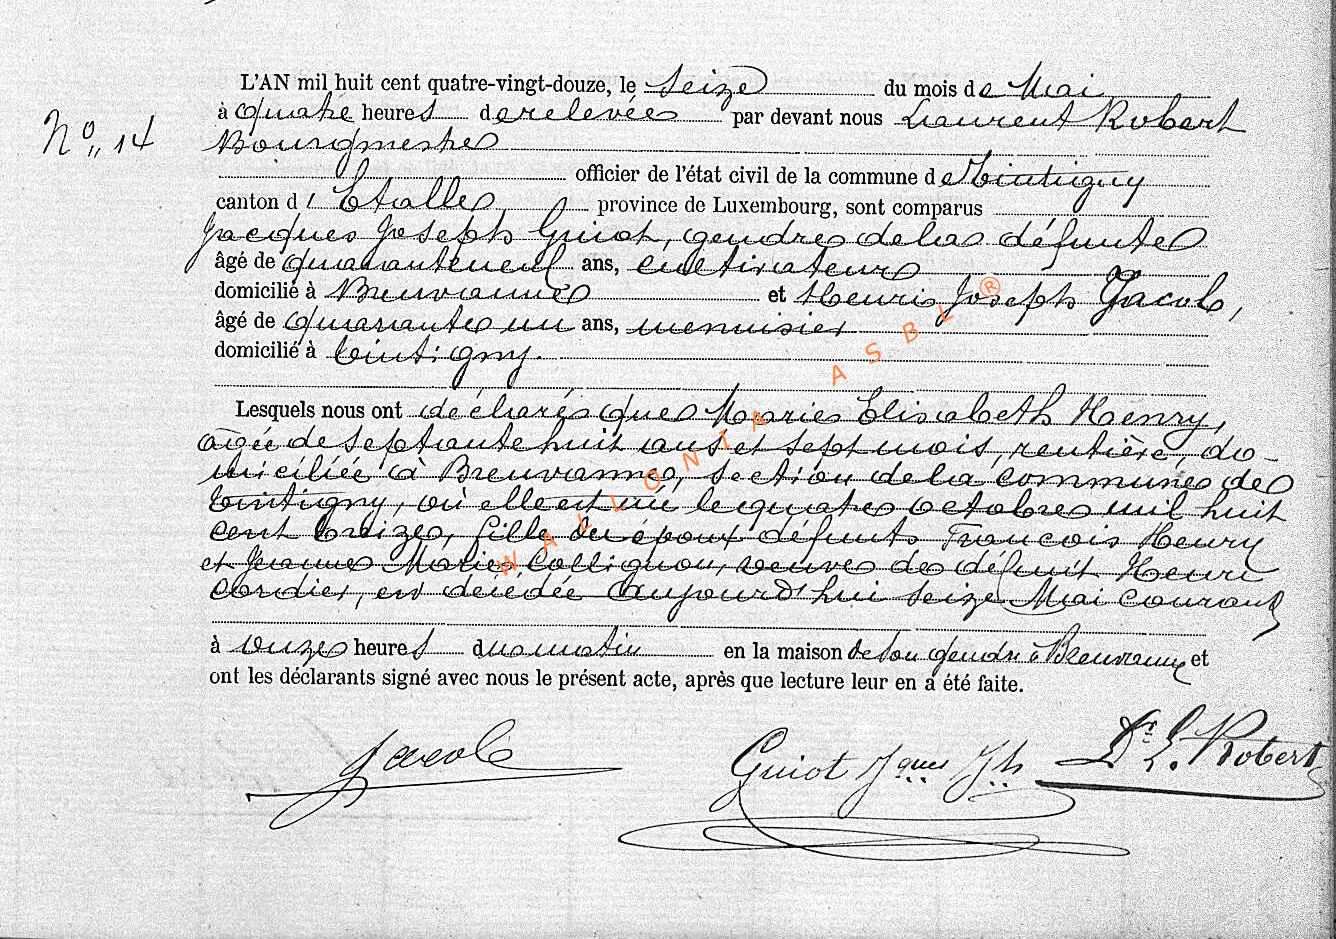 L'AN mil huit cent quatre-vingt-douze, le seize du mois de Mai
N° 14
à quatre heures de relevée par devant nous Laurent Robert
Bourgmestre
officier de l'état civil de la commune de Tintigny
canton d'Etalle province de Luxembourg, sont comparus
Jacques Joseph Guiot, gendre de la défunte
âgé de quarante neuf ans, cultivateur
domicilié à Breuvanne et Henri Joseph Jacob,
âgé de quarante un ans, menuisier
domicilié à Tintigny.
Lesquels nous ont déclaré que Marie Elisabeth Henry,
âgée de septante huit ans et sept mois, rentière, do-
miciliée à Breuvanne, section de la commune de
Tintigny, où elle est né le quatre octobre mil huit
cent treize, fille des époux défunts François Henry
et Jeanne Marie Collignon, veuve de défunt Henri
Cordier, est décédée aujourd'hui seize Mai courant
à onze heures du matin en la maison de son gendre à Breuvanne et
ont les déclarants signé avec nous le présent acte, après que lecture leur en a été faite.
Jacob
Guiot Jques Jh
Dr L. Robert
WALLONIA ASBL ®